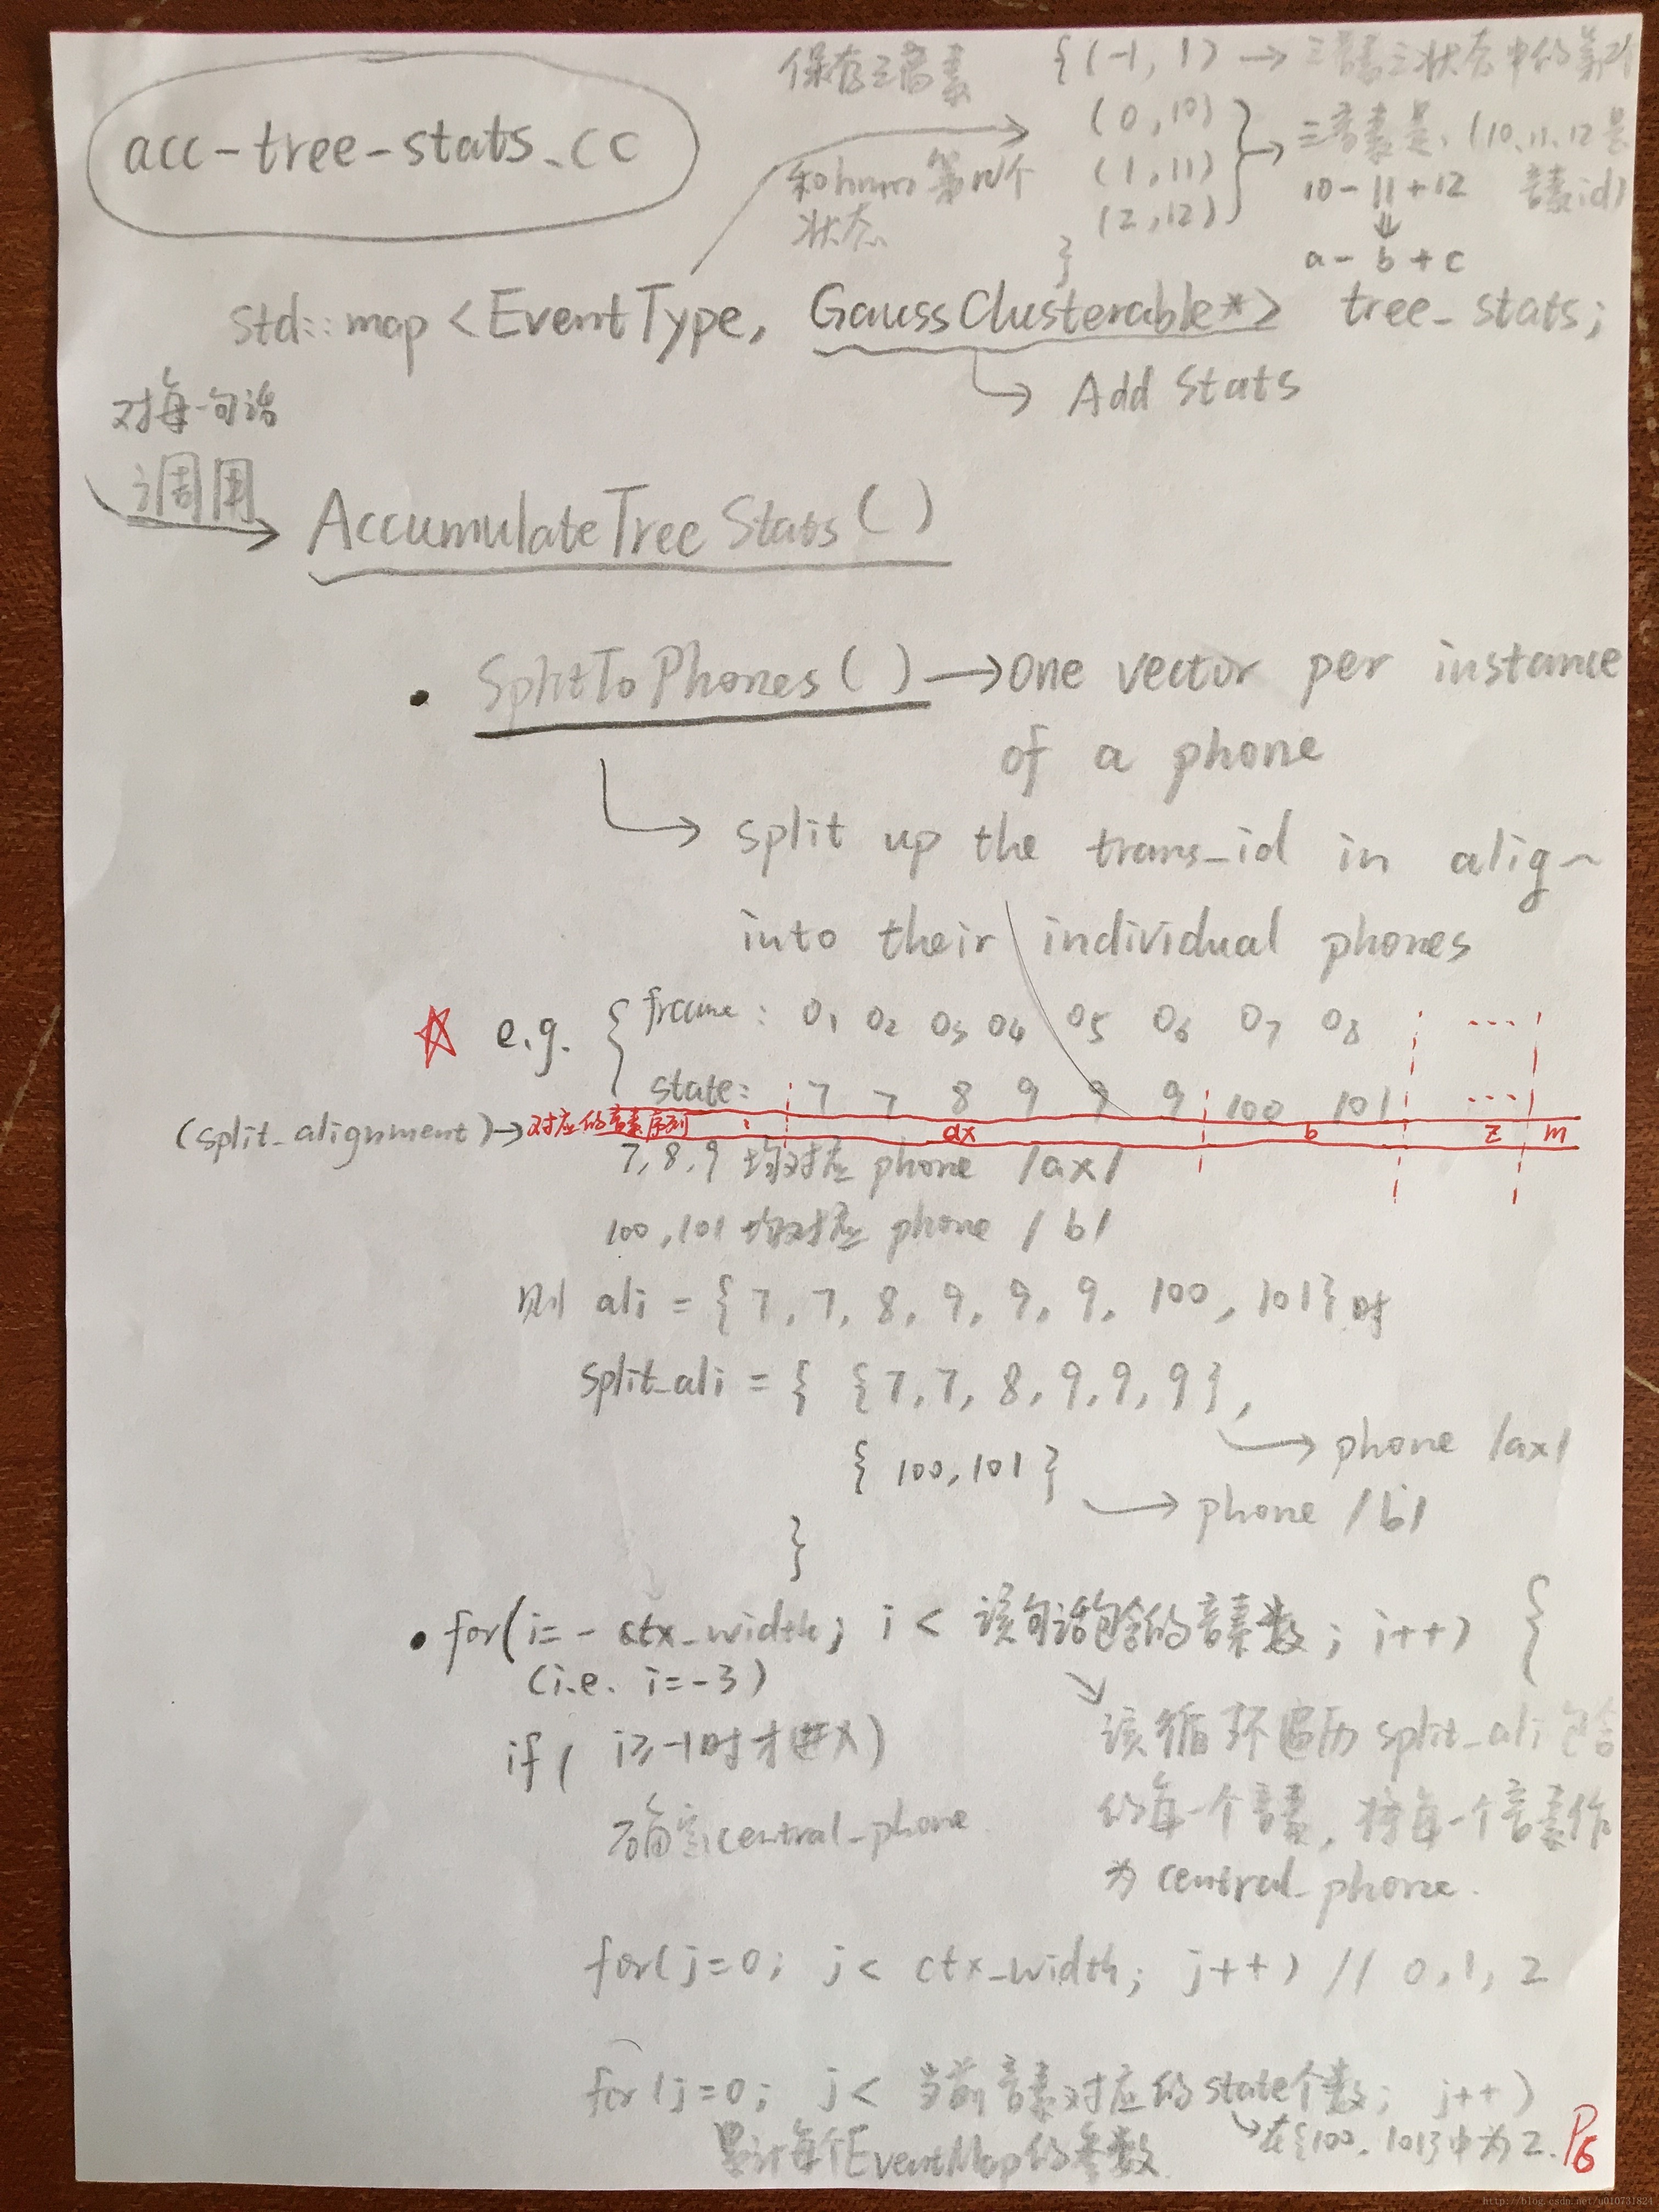 acc-tree-stats.cc
保存三音素
和hmm第几个
状态
{(-1, 1) → 三音素三状态中的第2个
(0, 10)
(1, 11)
(2, 12)
}
三音素是: (10,11,12是
10-11+12 音素id)
a-b+c
std::map <EventType, GaussClusterable*> tree_stats;
Add Stats
对每一句话
调用
AccumulateTreeStats()
• SplitToPhones() → one vector per instance
of a phone
split up the trans_id in alig~
into their individual phones
☆ e.g. { frame: O1 O2 O3 O4 O5 O6 O7 O8 ...
state: 7 7 8 9 9 9 100 101 ...
(split_alignment)→对应的音素序列 : ax b z m
7,8,9 均对应 phone /ax/
100,101 均对应 phone /b/
则 ali = {7,7,8,9,9,9,100,101}时
split_ali = { {7,7,8,9,9,9},
→ phone /ax/
{100,101}
→ phone /b/
}
• for(i=-ctx_width; i < 该句话包含的音素数; i++) {
(i.e. i=-3)
if( i≥-1时才进入)
确定central_phone
该循环遍历split_ali包含
的每一个音素, 将每一个音素作
为central_phone.
for(j=0; j< ctx_width; j++) // 0,1,2
for(j=0; j< 当前音素对应的state个数; j++)
→在{100,101}中为2.
累计每个EventMap的参数
P6
http://blog.csdn.net/u010731824